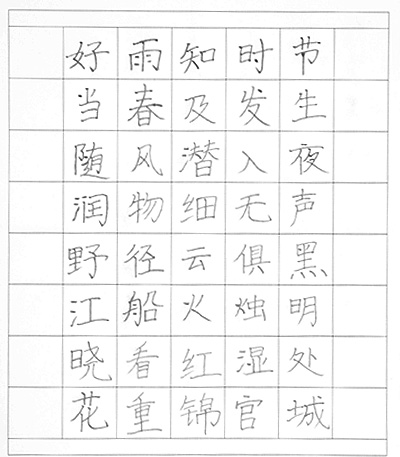 好雨知时节
当春及发生
随风潜入夜
润物细无声
野径云俱黑
江船火烛明
晓看红湿处
花重锦官城